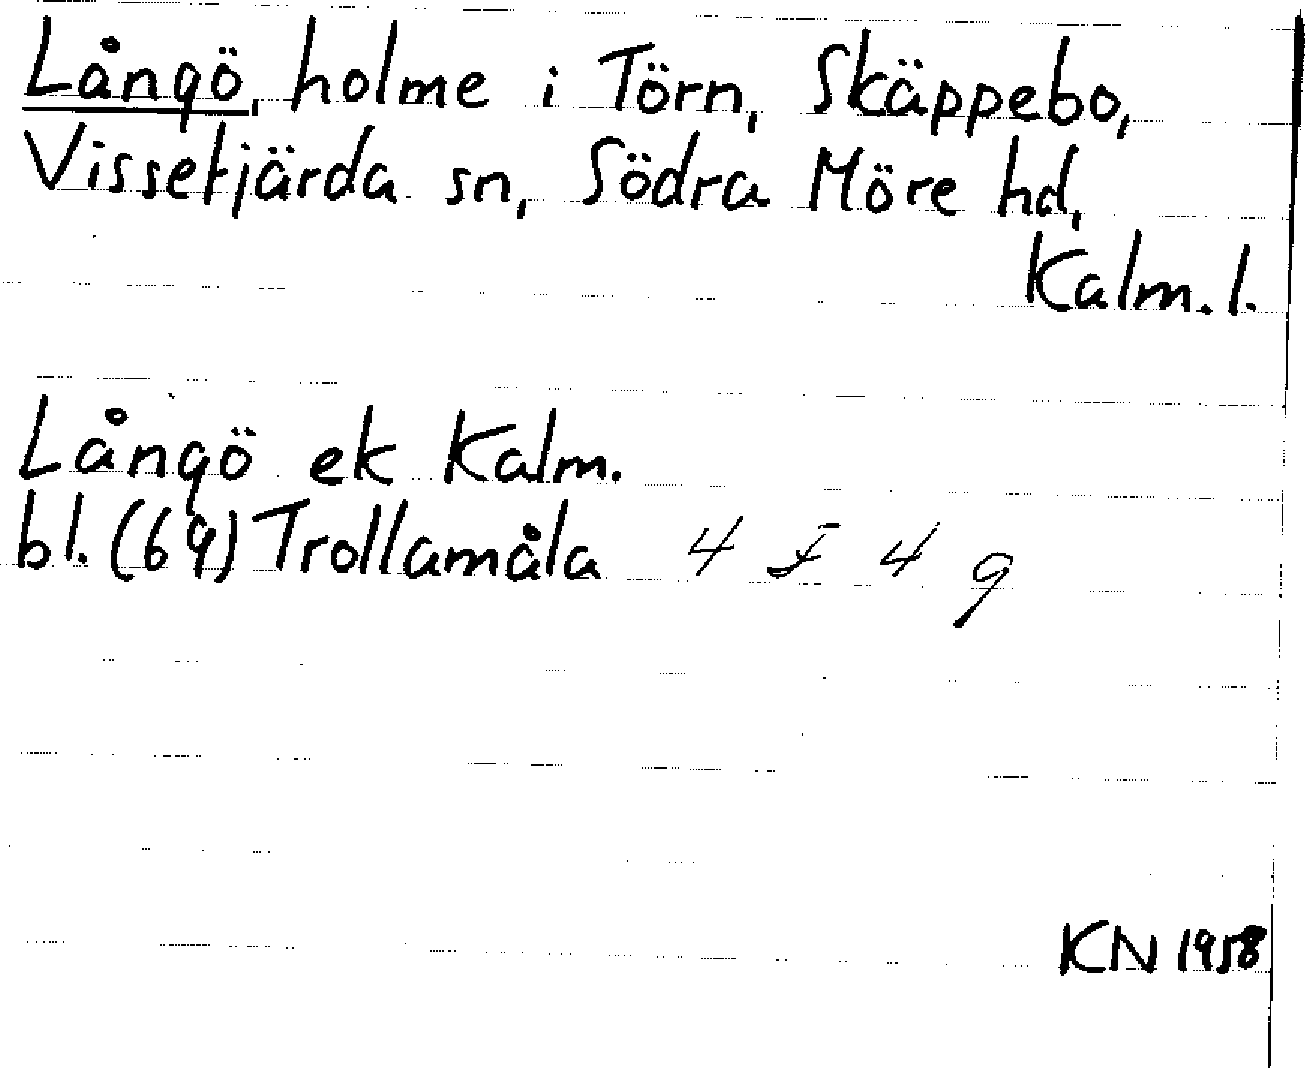 Långö, holme i Törn, Skäppebo,
Vissefjärda sn, Södra Möre hd,
Kalm. l.
Långö ek Kalm.
bl. (69) Trollamåla 4 F 4 g
KN 1958